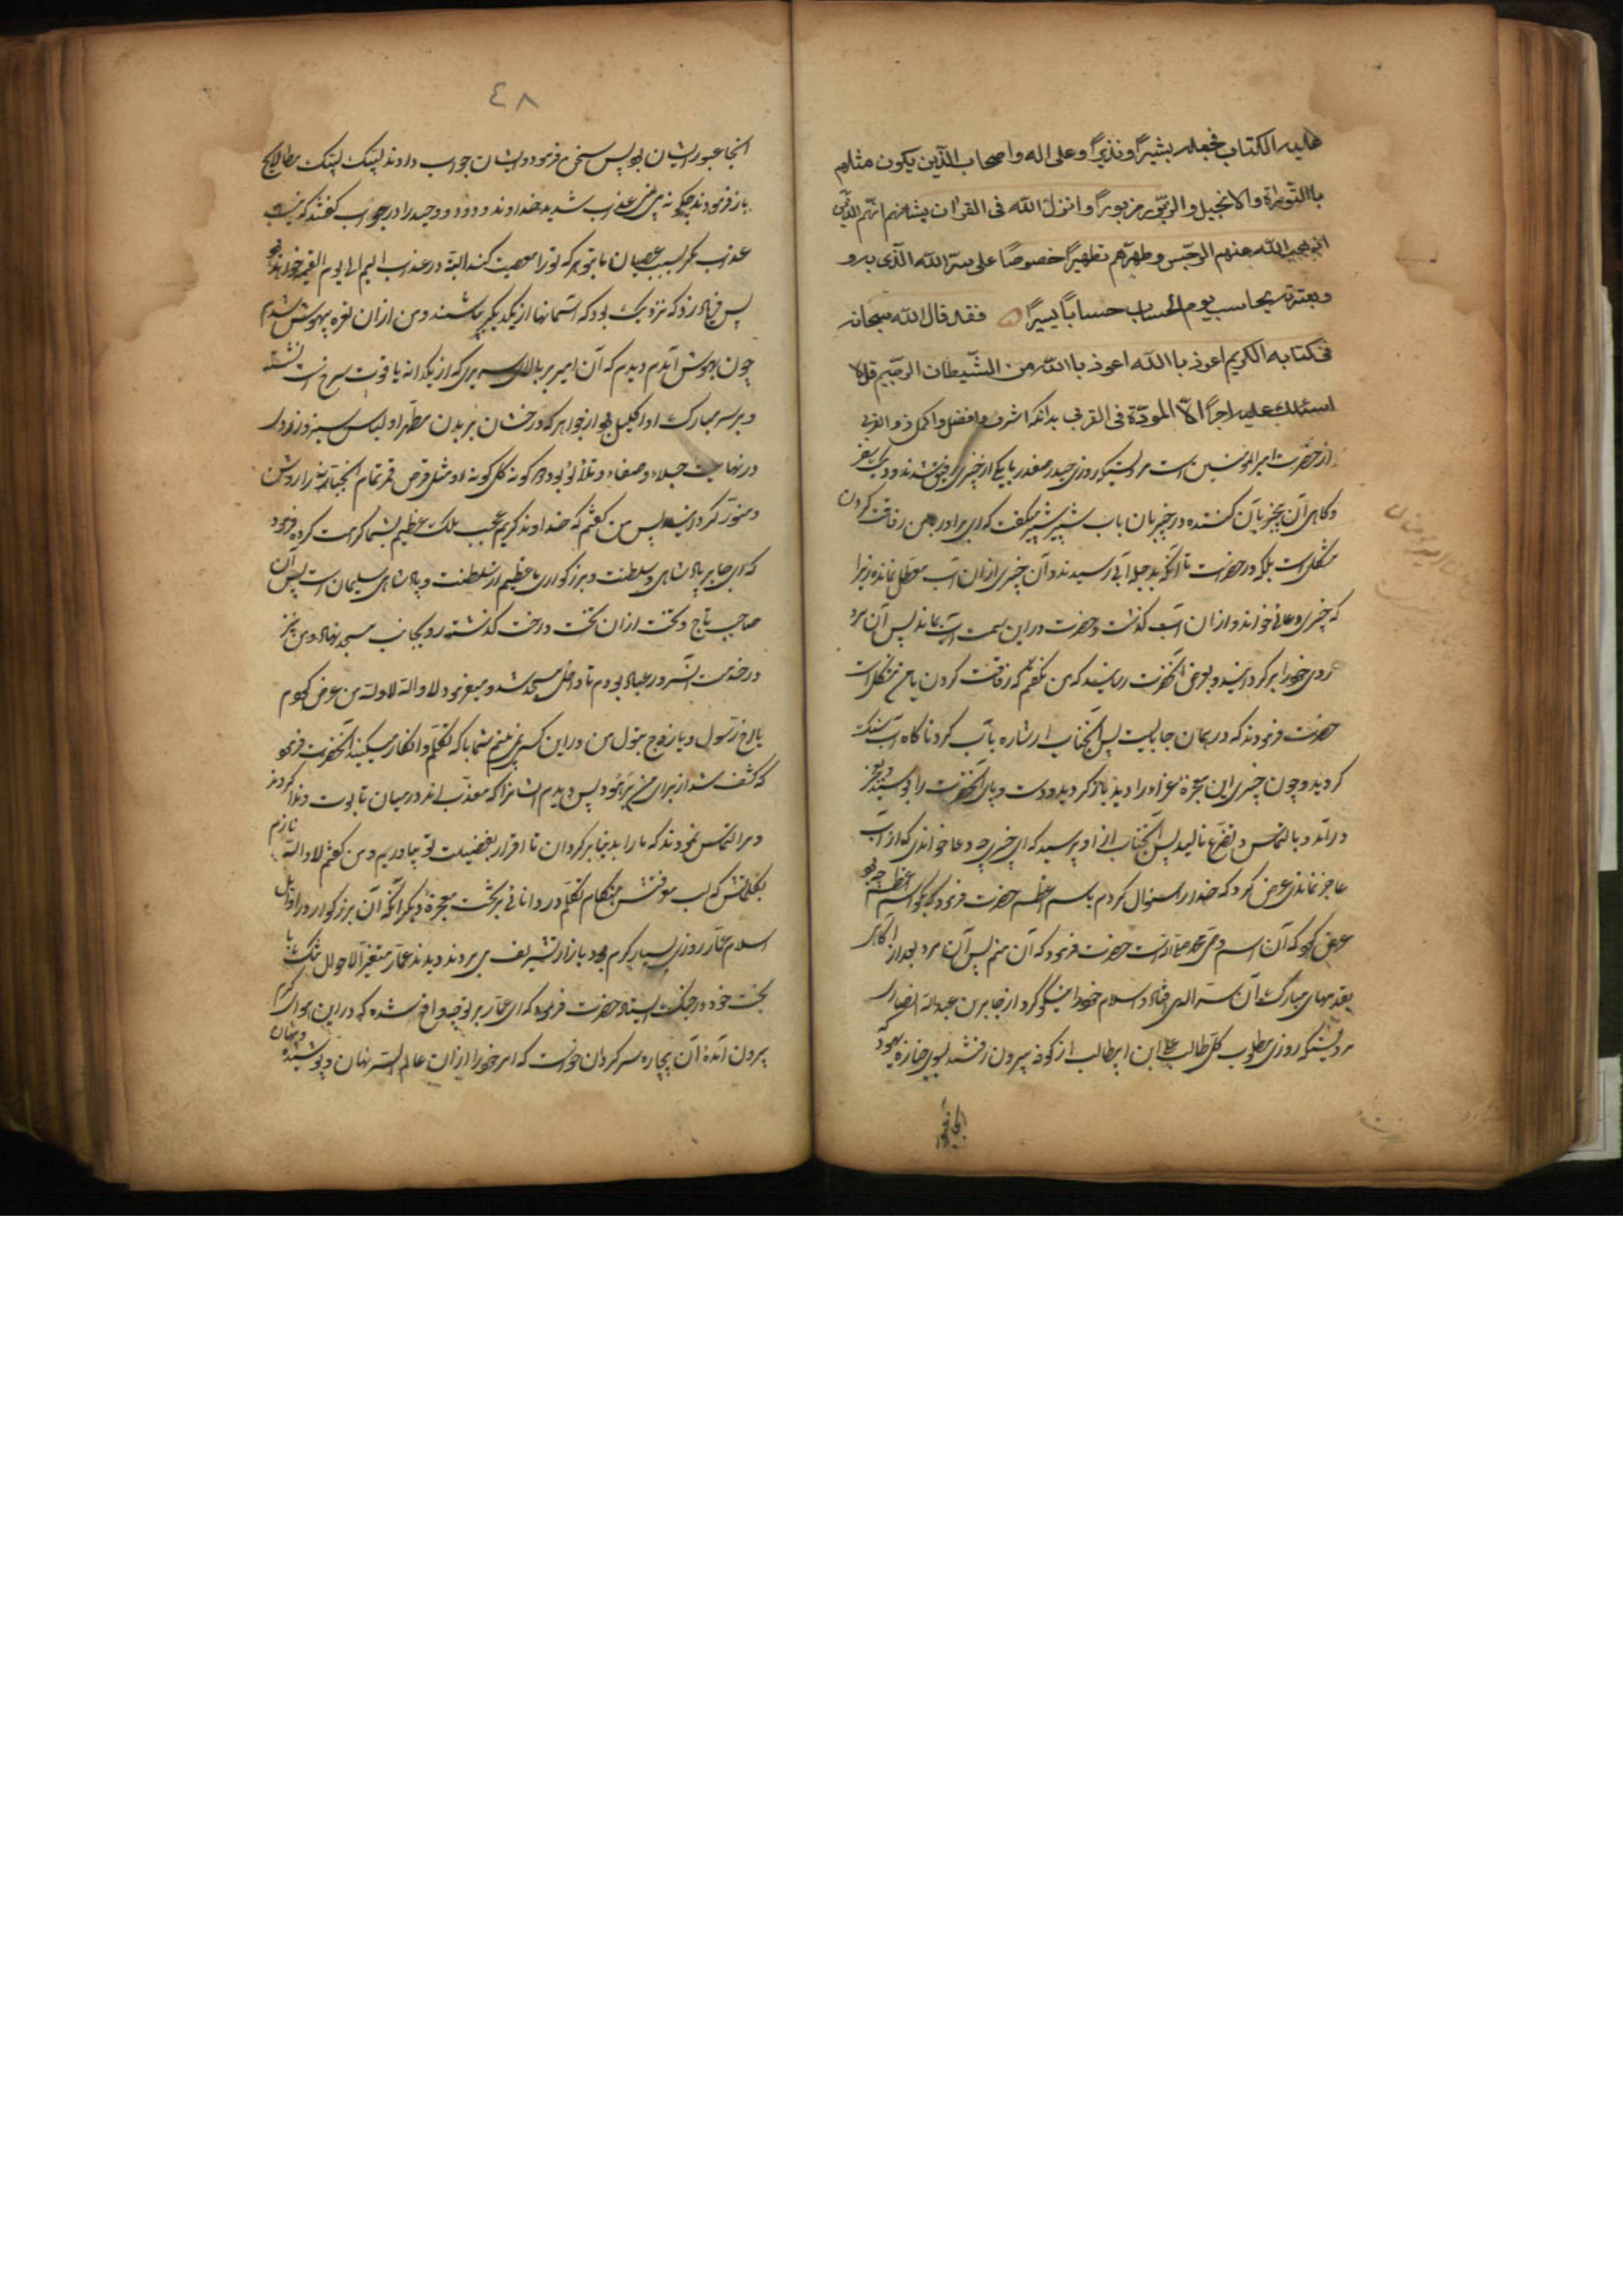 علیه الکتاب فجعله بشیراً و نذیراً و علی اله و اصحاب الذین یکون مثلهم
باالتوراة والانجیل والزبور مزبوراً و انزل الله فی القرآن بشانهم انهم الذین
اذهب الله عنهم الرجس و طهرهم تطهیراً خصوصاً علی سرّ الله الذی به و
و بعترته یحاسب یوم الحساب حساباً یسیراً فقد قال الله سبحانه
فی کتابه الکریم اعوذ باالله اعوذ باالله من الشیطان الرجیم قل لا
اسئلکم علیه اجراً الا المودة فی القربی بدانکه اشرف و افضل و اکمل ذو القربی
از حضرت امیر المؤمنین است مرویستکه روزی حیدر صفدر با یکی از خیبری رفیق شدند و در یک سفر
و گاهی آن بیخبر بآن کشنده در خیبر بآن باب شبیر شبر میگفت که ای برادر بمن رفاقت کردن
مشکل است بلکه در حضرت تا آنکه بدجله آبی رسیدند و آن خیبری از ان آب معطل نمانده زیرا
که خیبری دعائی خواند و از ان آب گذشت و حضرت در این سمت آب بماند پس آن مرد
روی خود را بر گردانید و بعرض آنحضرت رسانید که من نگفتم که رفاقت کردن با من مشکل است
حضرت فرمودند که در همان جا بایست پس آنجناب اشاره بآب کرد ناگاه آب سنگ
گردید و چون خیبری این معجزه غرا را دید باز گردید و دست و پای آنحضرت را بوسید و بعجز
در آمد و بالتماس و تضرع نالید پس آنجناب از او پرسید که ای خیبری چه دعا خواندی که از آب
عاجز نماندی عرض کرد که خدا را سؤال کردم باسم اعظم حضرت فرمود که بگو اسم اعظم چه بود
عرض کرد که آن اسم وصی محمد مصطفی است حضرت فرمود که آن منم پس آن مرد بعد از آگاهی
بقدمهای مبارک آن سرّ الله افتاد و اسلام خود را نیکو کرد از جابر بن عبدالله انصاری
مرویستکه روزی مطلوب کل طالب علی ابن ابیطالب از کوفه بیرون رفتند بسوی جنازه یهود که
٤٨
انجا عبور ایشان بود پس سخن فرمود و ایشان جواب دادند لبیک لبیک
باز فرمودند چگونه می بینی عذاب شدید خداوند ودود و وحید را در جواب گفتند که نیست
عذاب مگر بسبب عصیان ما بتو هر که تو را معصیت کند البته در عذاب الیم الی یوم القیمه خواهد بود
پس فریاد زد که نزدیک بود که آسمانها از یکدیگر بپاشند و من از ان نعره بیهوش شدم
چون بهوش آمدم دیدم که آن امیر بر بالای سریری که از یکدانه یاقوت سرخ است نشسته
و بر سر مبارک او اکلیل بود از جواهر که درخشان بر بدن مطهر او لباس سبز و زرد
در نهایت جلاء و صفاء و تلألؤ بود و هر گونه گل گونه او مثل قرص قمر تمام را روشن
و منور گردانید پس من گفتم که خداوند کریم عجب ملک عظیم بشما کرامت کرده فرمود
که ای جابر پادشاهی و سلطنت و بزرگواری ما عظیم از سلطنت و پادشاهی سلیمان است پس آن
صاحب تاج و تخت از ان تخت و رخت گذشته رو بجانب مسجد نهاد و من نیز
در خدمت آنسرور عباد بودم تا داخل مسجد شد و میفرمود لا والله لا والله من عرض کردم
یا اخ رسول و یا زوج بتول من در این کسی نمی بینم شما با که تکلم و انکار میکنید آنحضرت فرمود
که کشف شد از برای من پس دیدم ایشانرا که معذب اند در میان تابوت و ندا کردند
و مرا التماس نمودند که ما را بدنیا بر گردان تا اقرار بفضیلت تو بیاوریم و من گفتم لا والله
معجزه دیگر آنکه آن بزرگوار در اوایل
اسلام عمار روزی بسیار گرم بود ببازار تشریف می بردند و دیدند عمار متغیر الاحوال تنگ با
بخت خود در جنگ ایستاده حضرت فرمود که ای عمار بر تو چه واقع شده که در این هوای گرم
بیرون آمده آن بیچاره سرگردان خواست که امر خود را از ان عالم السر نهان و پوشیده